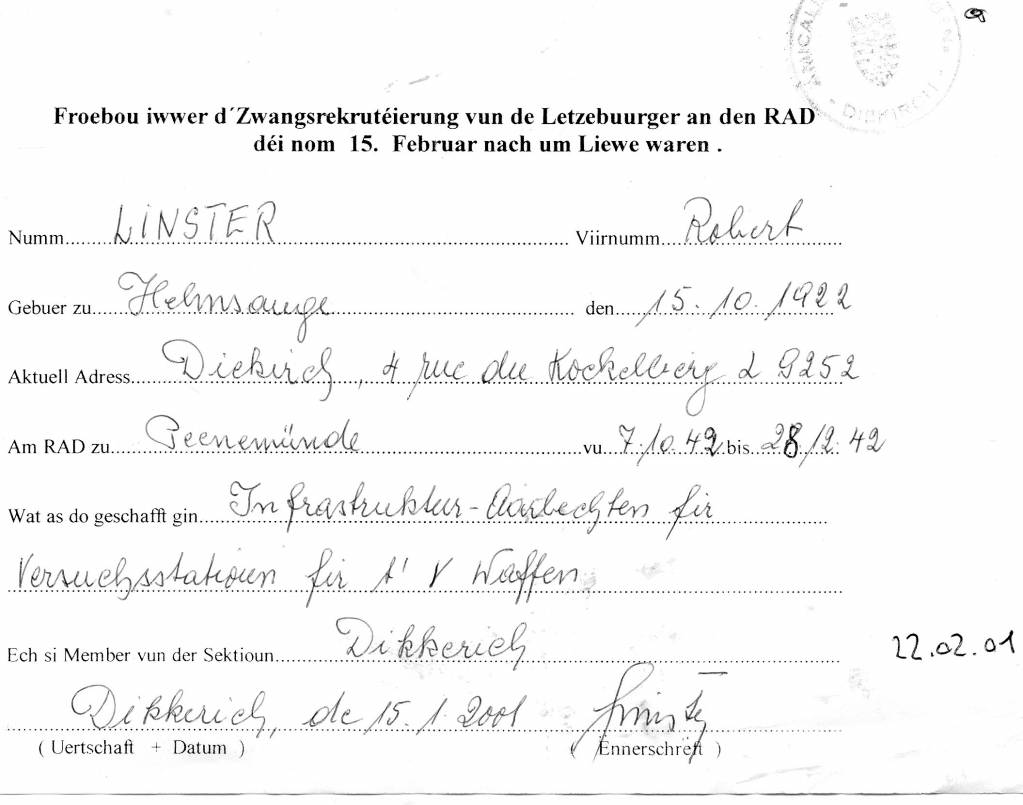 AMICALE
DIEKIRCH
Froebou iwwer d´Zwangsrekrutéierung vun de Letzebuurger an den RAD
déi nom 15. Februar nach um Liewe waren .
Numm........LINSTER........ Viirnumm....Robert........
Gebuer zu.....Helmsange........ den.....15.10.1922
Aktuell Adress.....Diekirch, 4 rue du Kockelberg L 9252
Am RAD zu......Peenemünde........vu...7.10.42 bis...28/12.42
Wat as do geschafft gin.....Infrastruktur-Aarbechten fir
Versuchsstatioun fir t' V Waffen
Ech si Member vun der Sektioun............Dikkerich........ 22.02.01
Dikkerich, de 15.1.2001
( Uertschaft + Datum ) ( Ennerschrëft )